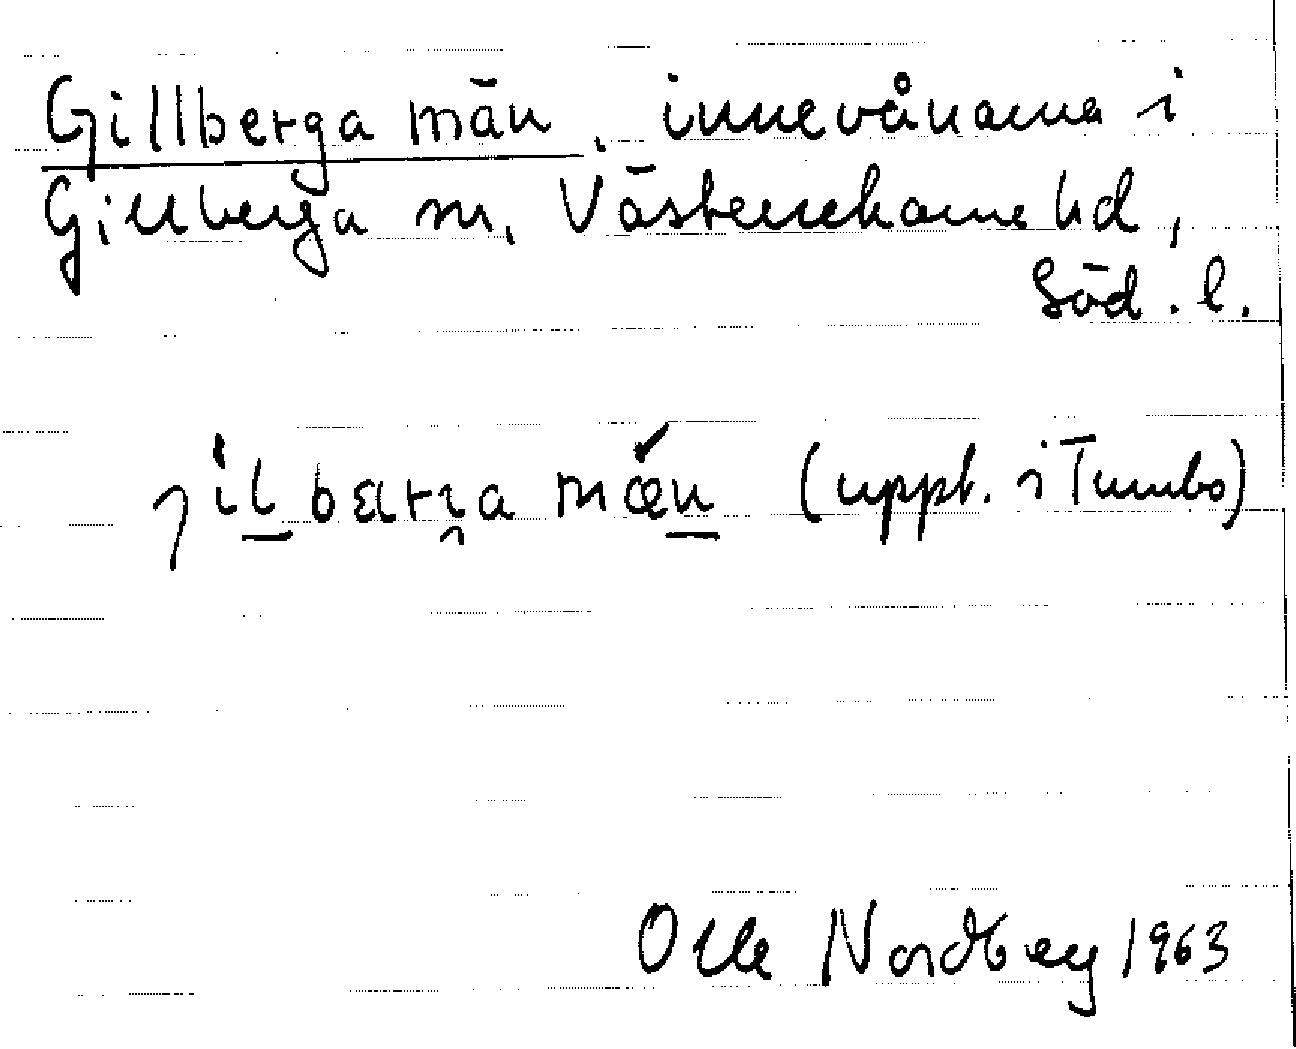 Gillberga män, innevånarna i
Gillberga sn, Västerrekarne hd,
Söd. l.
(uppt. i Tumbo)
Olle Nordberg 1963